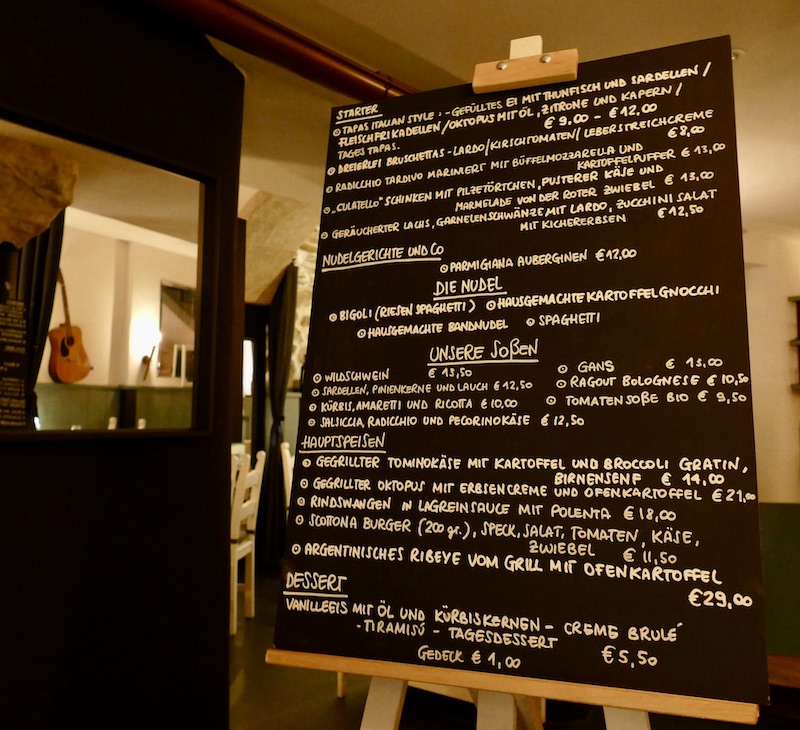 STARTER
⊙ TAPAS ITALIAN STYLE : - GEFÜLLTES EI MIT THUNFISCH UND SARDELLEN /
FLEISCHFRIKADELLEN / OKTOPUS MIT ÖL, ZITRONE UND KAPERN /
TAGES TAPAS. € 9.00 - € 12.00
⊙ DREIERLEI BRUSCHETTAS - LARDO / KIRSCHTOMATEN / LEBERSTREICHCREME
€ 8,00
⊙ RADICCHIO TARDIVO MARINIERT MIT BÜFFELMOZZARELLA UND
KARTOFFELPUFFER € 13,00
⊙ „CULATELLO" SCHINKEN MIT PILZTÖRTCHEN, PUSTERER KÄSE UND
MARMELADE VON DER ROTER ZWIEBEL € 13,00
⊙ GERÄUCHERTER LACHS, GARNELENSCHWÄNZE MIT LARDO, ZUCCHINI SALAT
MIT KICHERERBSEN € 12,50
NUDELGERICHTE UND CO
⊙ PARMIGIANA AUBERGINEN €12,00
DIE NUDEL
⊙ BIGOLI (RIESEN SPAGHETTI) ⊙ HAUSGEMACHTE KARTOFFELGNOCCHI
⊙ HAUSGEMACHTE BANDNUDEL ⊙ SPAGHETTI
UNSERE SOßEN
⊙ WILDSCHWEIN € 13,50 ⊙ GANS € 13,00
⊙ SARDELLEN, PINIENKERNE UND LAUCH € 12,50 ⊙ RAGOUT BOLOGNESE € 10,50
⊙ KÜRBIS, AMARETTI UND RICOTTA € 10.00 ⊙ TOMATENSOßE BIO € 9,50
⊙ SALSICCIA, RADICCHIO UND PECORINOKÄSE € 12,50
HAUPTSPEISEN
⊙ GEGRILLTER TOMINOKÄSE MIT KARTOFFEL UND BROCCOLI GRATIN,
BIRNENSENF € 14,00
⊙ GEGRILLTER OKTOPUS MIT ERBSENCREME UND OFENKARTOFFEL €21,00
⊙ RINDSWANGEN IN LAGREINSAUCE MIT POLENTA € 18,00
⊙ SCOTTONA BURGER (200 gr.), SPECK, SALAT, TOMATEN, KÄSE,
ZWIEBEL € 11,50
⊙ ARGENTINISCHES RIBEYE VOM GRILL MIT OFENKARTOFFEL
€29,00
DESSERT
VANILLEEIS MIT ÖL UND KÜRBISKERNEN - CREME BRULÉ
- TIRAMISÚ - TAGESDESSERT € 5,50
GEDECK € 1,00